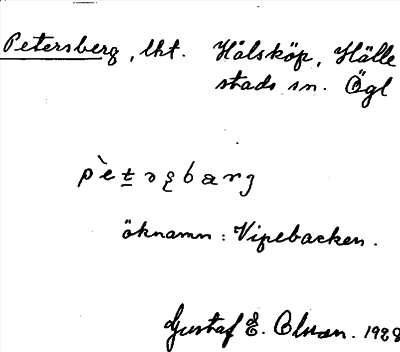 Petersberg, lht. Hålsköp, Hälle
stads sn. Ögl
pètəʂbærg
öknamn: Vipebacken.
Gustaf E. Olsson. 1928